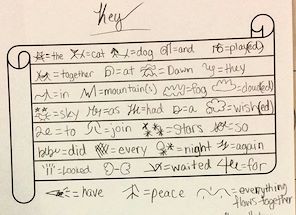 Key
=the =cat =dog =and =play(ed)
=together =at =Dawn =they
=in =mountain(s) =fog =cloud(ed)
=sky =as =had =a =wish(ed)
=to =join =stars =so
=did =every =night =again
=looked =waited =for
=have =peace =everything flows together